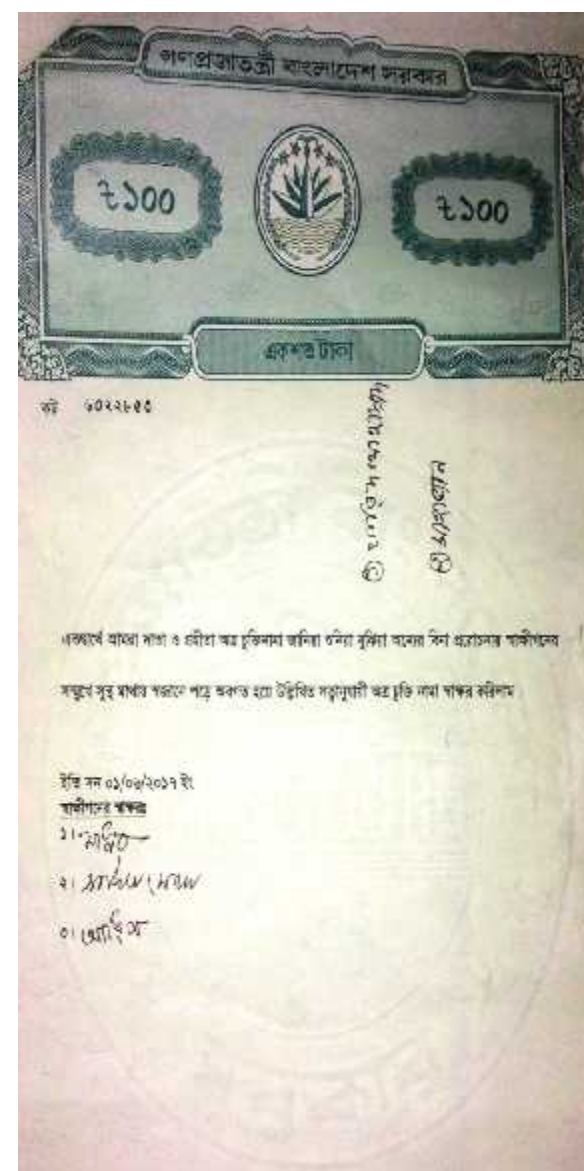 গণপ্রজাতন্ত্রী বাংলাদেশ সরকার
৳১০০
৳১০০
একশত টাকা
কট ৬০২২৮৫৩
এতদ্বার্থে আমরা দাতা ও গ্রহীতা অত্র চুক্তিনামা জানিয়া শুনিয়া বুঝিয়া অন্যের বিনা প্ররোচনায় স্বাক্ষীগনের
সম্মুখে সুস্থ মাথায় স্বজ্ঞানে পড়ে অবগত হয়ে উল্লিখিত সর্তানুযায়ী অত্র চুক্তি নামা স্বাক্ষর করিলাম
ইতি সন ০১/০৬/২০১৭ ইং
স্বাক্ষীগনের স্বাক্ষরঃ
১।
২।
৩।